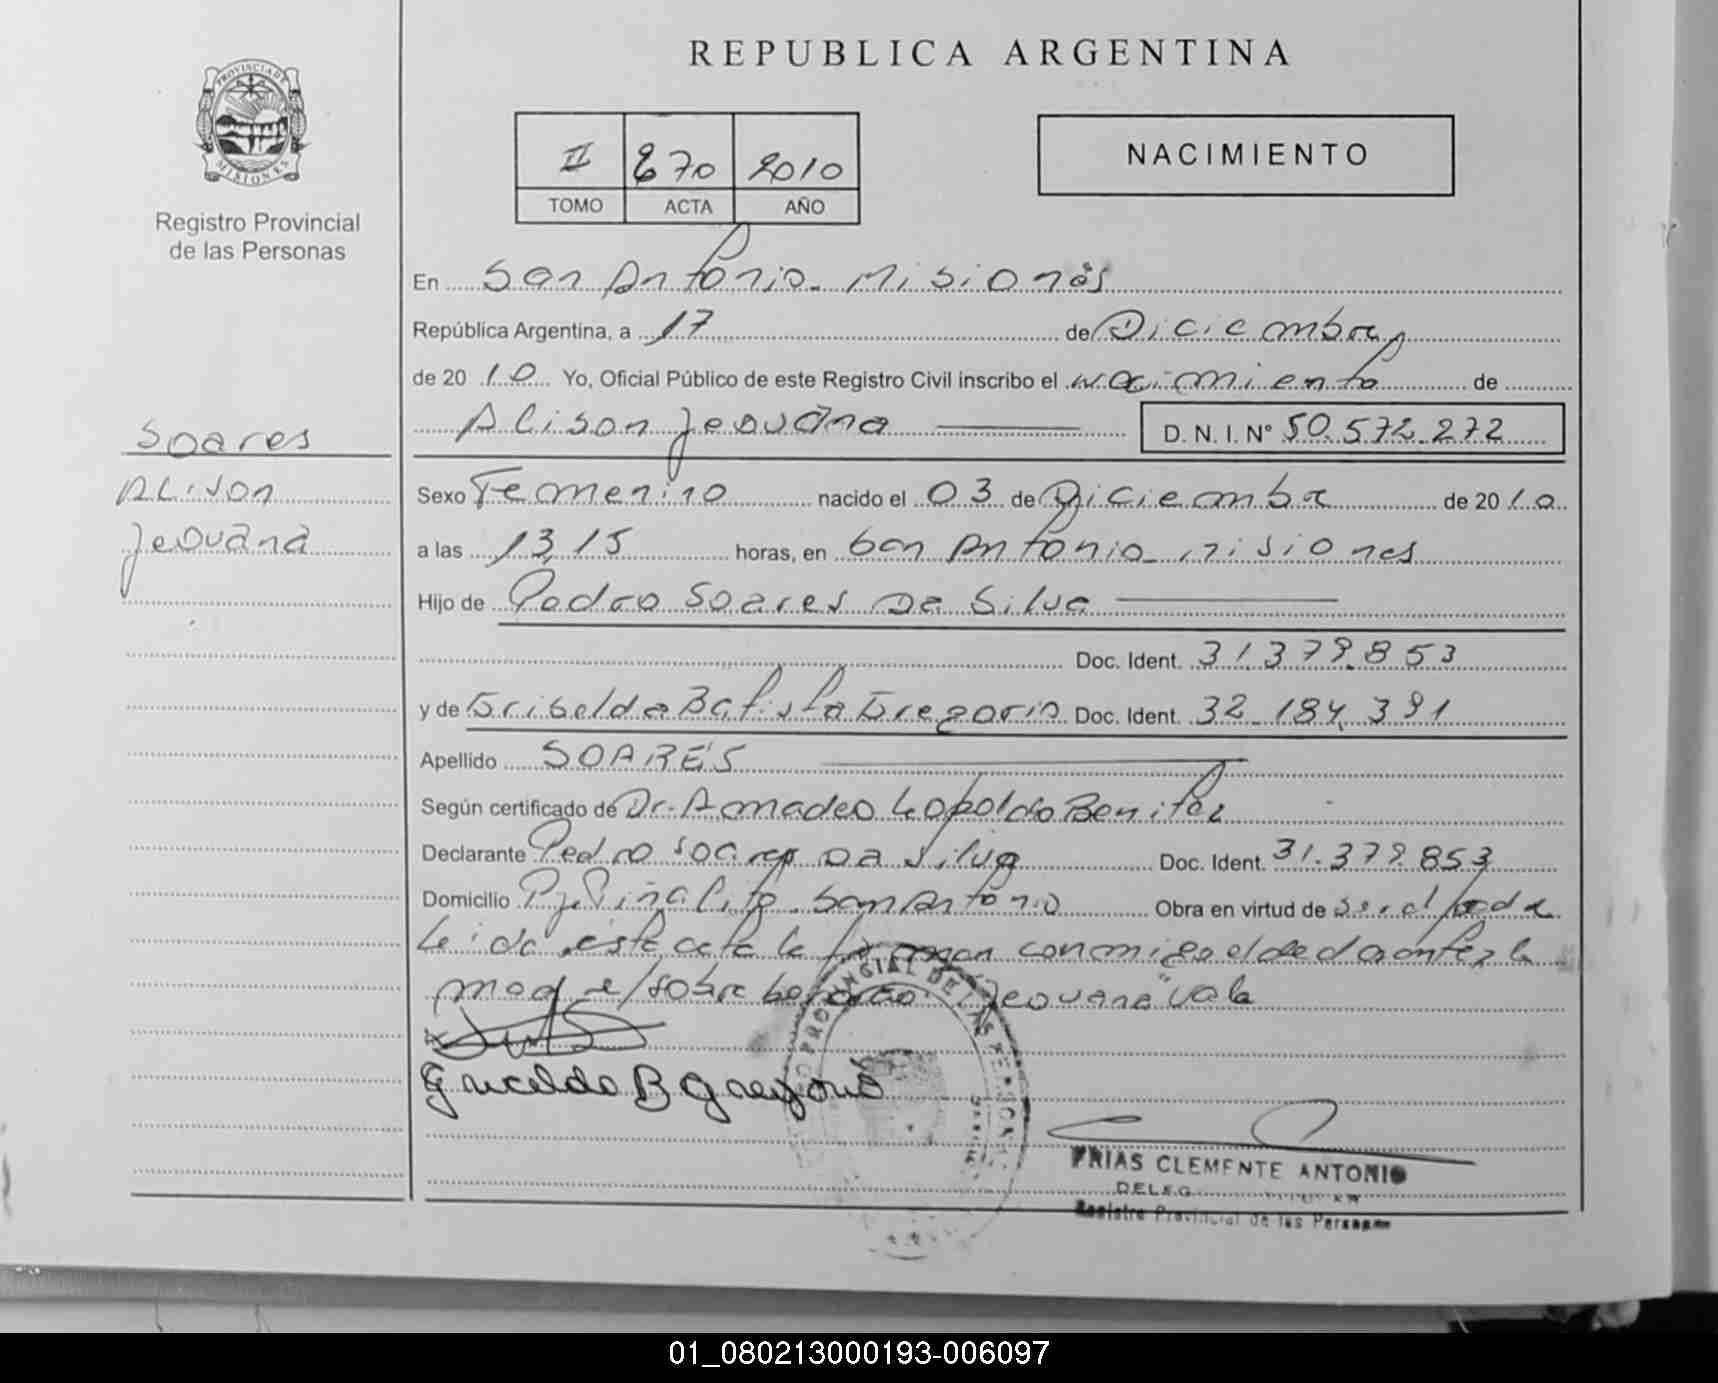 REPUBLICA ARGENTINA
PROVINCIA DE MISIONES
Registro Provincial
de las Personas
II 670 2010
TOMO ACTA AÑO
NACIMIENTO
En San Antonio - Misiones
República Argentina, a 17 de Diciembre
de 20 10 Yo, Oficial Público de este Registro Civil inscribo el nacimiento de
Alison Jeovana D. N. I. N° 50.572.272
Soares
Alison
Jeovana
Sexo Femenino nacido el 03 de Diciembre de 20 10
a las 13,15 horas, en San Antonio - Misiones
Hijo de Pedro Soares Da Silva
Doc. Ident. 31.379.853
y de Griselda Batista Gregorio Doc. Ident. 32.184.391
Apellido SOARES
Según certificado de Dr. Amadeo Leopoldo Benitez
Declarante Pedro Soares Da Silva Doc. Ident. 31.379.853
Domicilio Pje. Piñalito San Antonio Obra en virtud de ser el padre
Leida esta acta la firman conmigo el declarante y la
madre/sobre borrado "Jeovana" Vale
Griselda B Gregorio
PROVINCIAL DE LAS PERSONAS
FRIAS CLEMENTE ANTONIO
Registro Provincial de las Personas
01_080213000193-006097